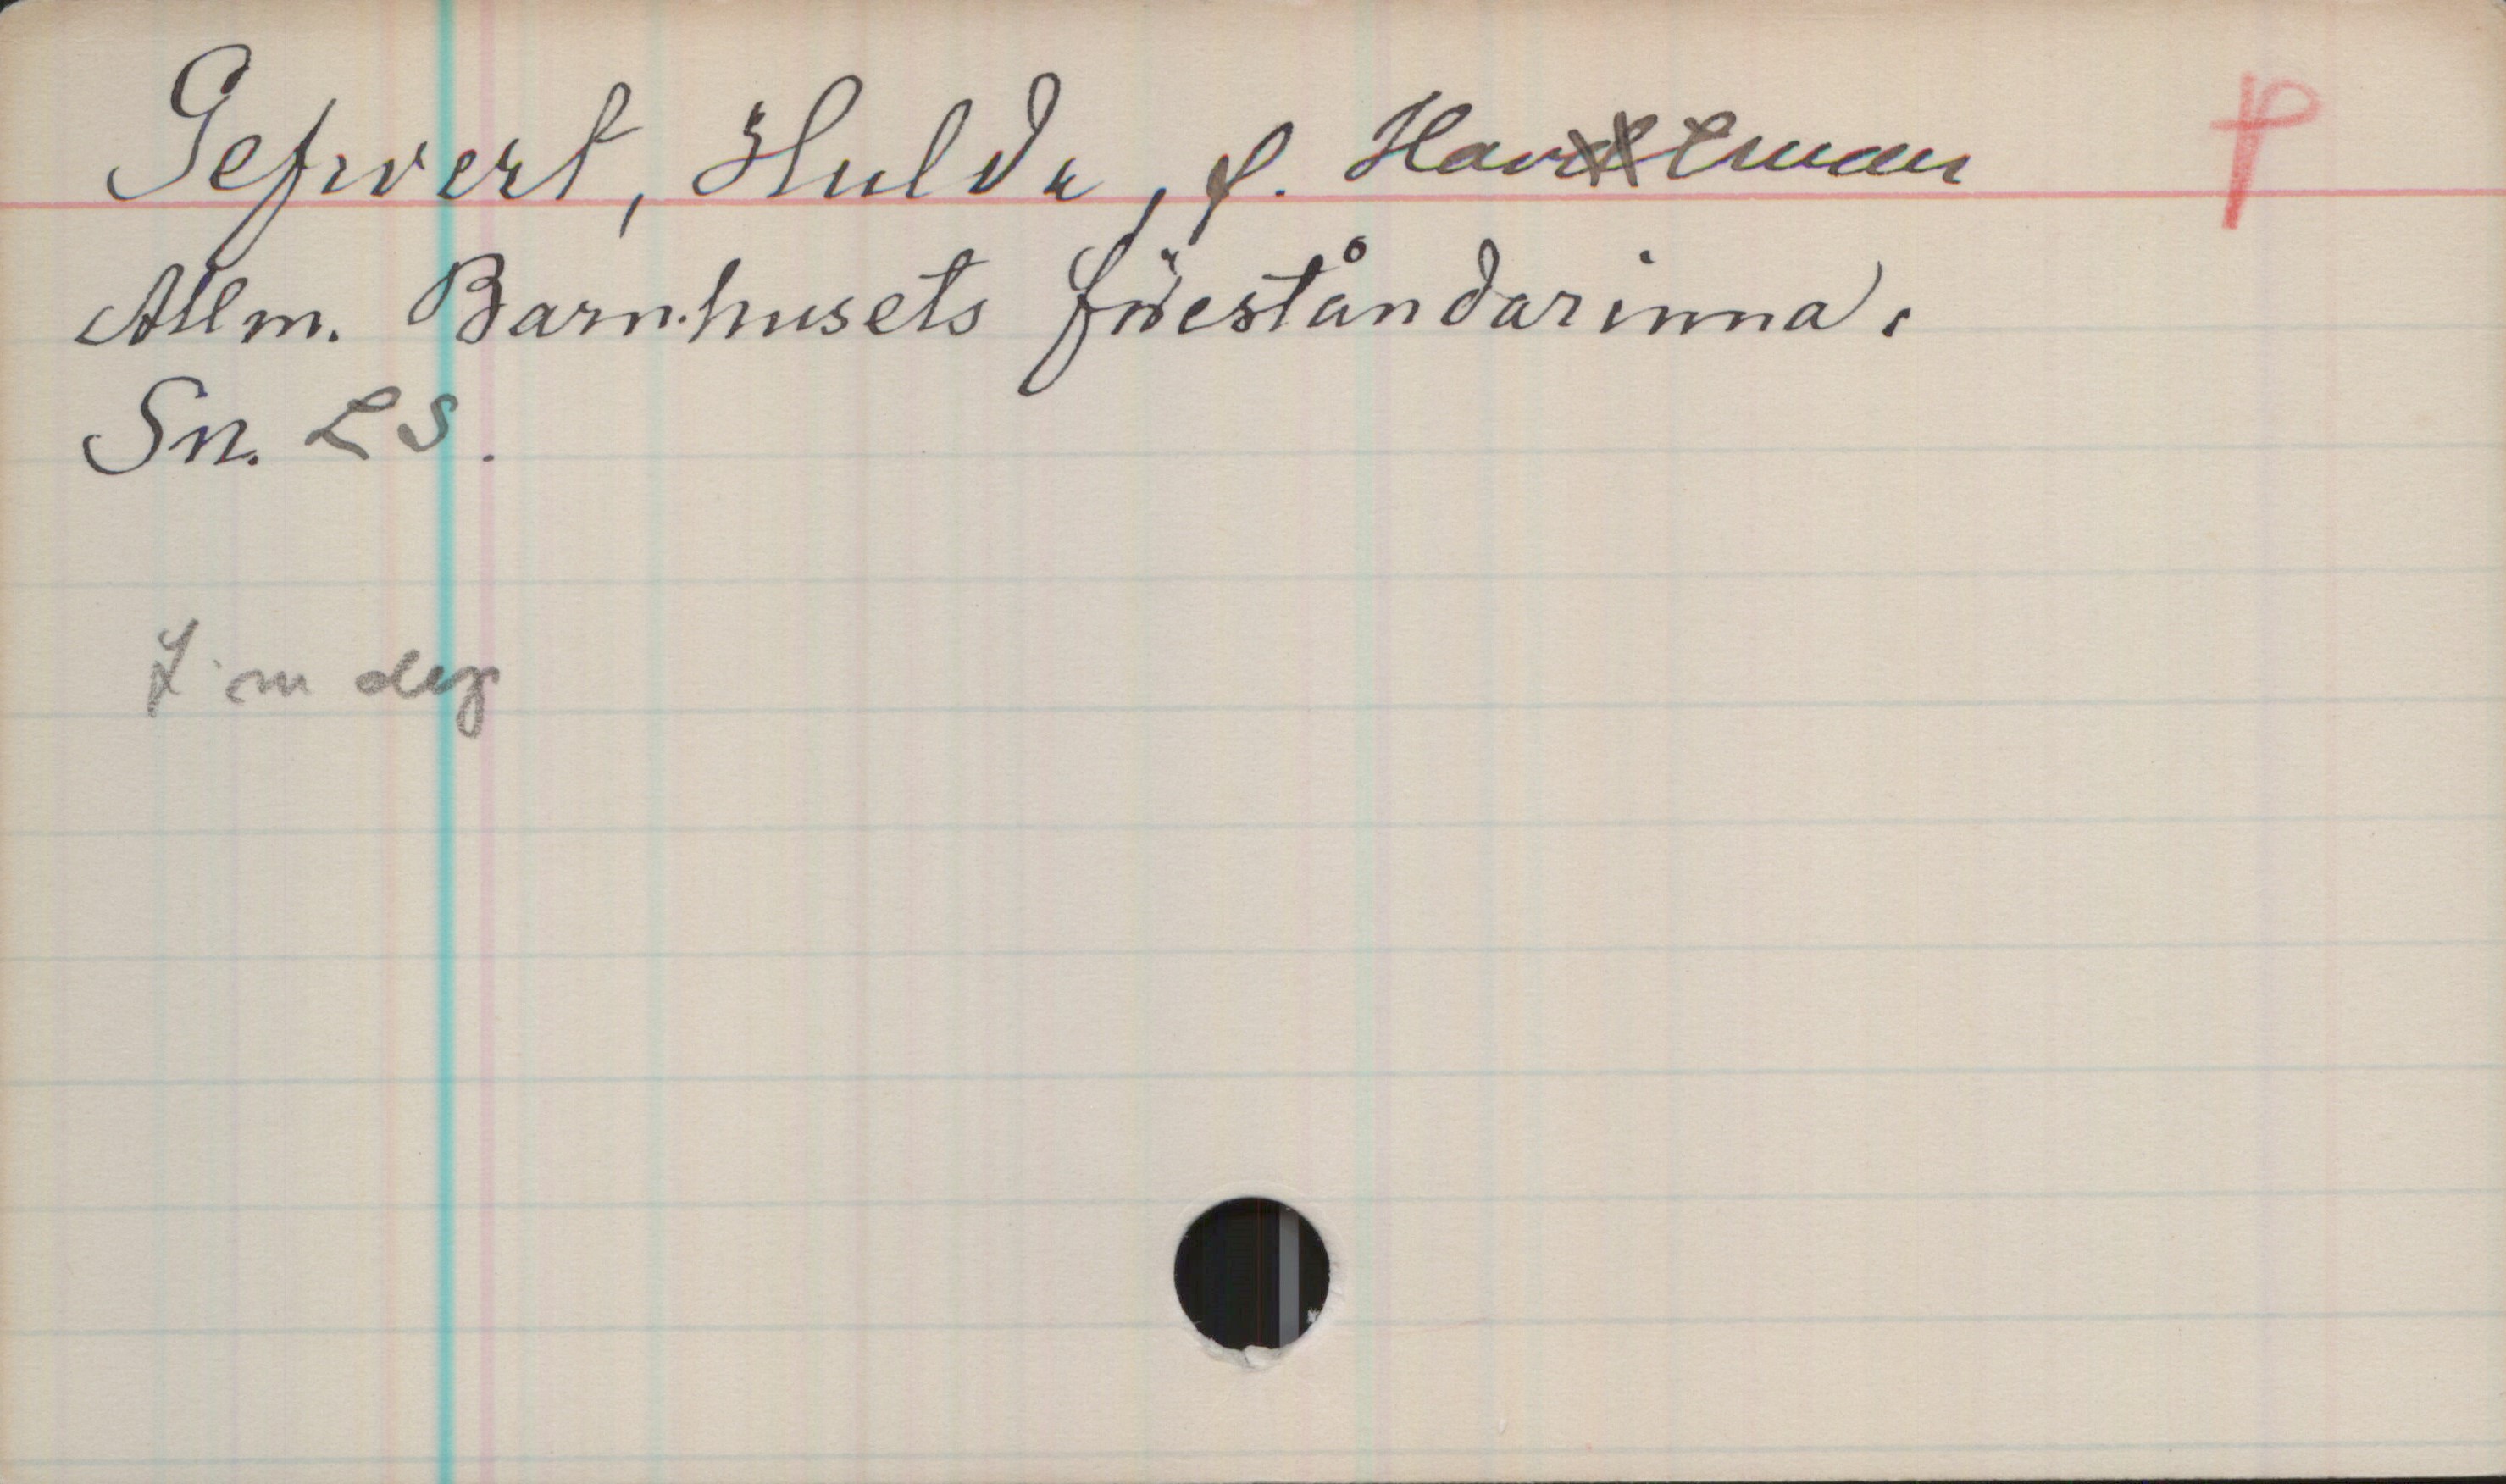 Gefvert, Hulda, f. Hartman P
Allm. Barnhusets föreståndarinna.
Sn. LS.